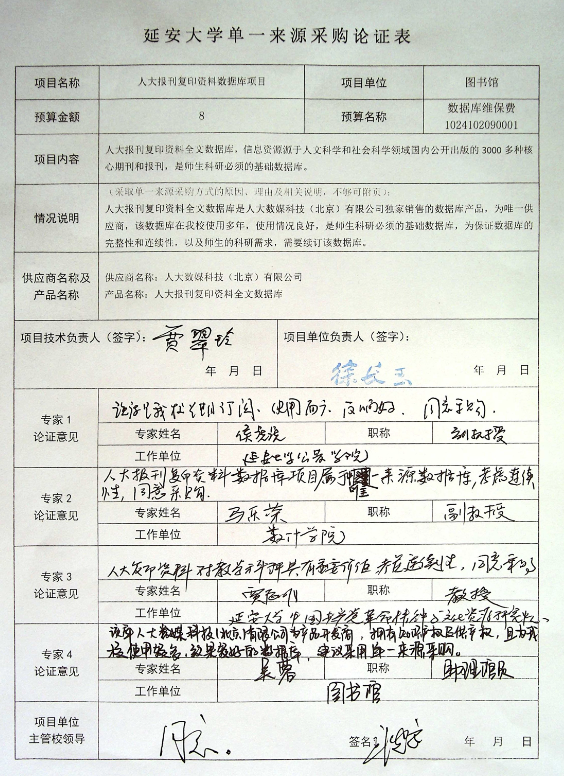 延安大学单一来源采购论证表
项目名称 人大报刊复印资料数据库项目 项目单位 图书馆
预算金额 8 预算名称 数据库维保费
1024102090001
项目内容 人大报刊复印资料全文数据库，信息资源源于人文科学和社会科学领域国内公开出版的 3000 多种核
心期刊和报刊，是师生科研必须的基础数据库。
情况说明 （采取单一来源采购方式的原因、理由及相关说明，不够可附页）：
人大报刊复印资料全文数据库是人大数媒科技（北京）有限公司独家销售的数据库产品，为唯一供
应商，该数据库在我校使用多年，使用情况良好，是师生科研必须的基础数据库，为保证数据库的
完整性和连续性，以及师生的科研需求，需要续订该数据库。
供应商名称及
产品名称
供应商名称：人大数媒科技（北京）有限公司
产品名称：人大报刊复印资料全文数据库
项目技术负责人（签字）： 贾翠玲
年 月 日
项目单位负责人（签字）：
徐长玉 年 月 日
专家 1
论证意见
同意采购。
专家姓名 职称 副教授
工作单位 延安大学公共学院
专家 2
论证意见
人大报刊复印资料数据库项目属 来源数据库，考虑连续
性，同意采购。
专家姓名 马乐荣 职称 副教授
工作单位 数计学院
专家 3
论证意见
人大复印资料对教学科研具有重要价值 考虑连续性，同意采购
专家姓名 职称 教授
工作单位 延安大学中国共产党革命精神与文化资源研究中心
专家 4
论证意见
该库人大数媒科技（北京）有限公司 产品开发商，拥有 ，且
建议采用单一来源采购。
专家姓名 吴蓉 职称 助理馆员
工作单位 图书馆
项目单位
主管校领导
同意。 签名： 年 月 日